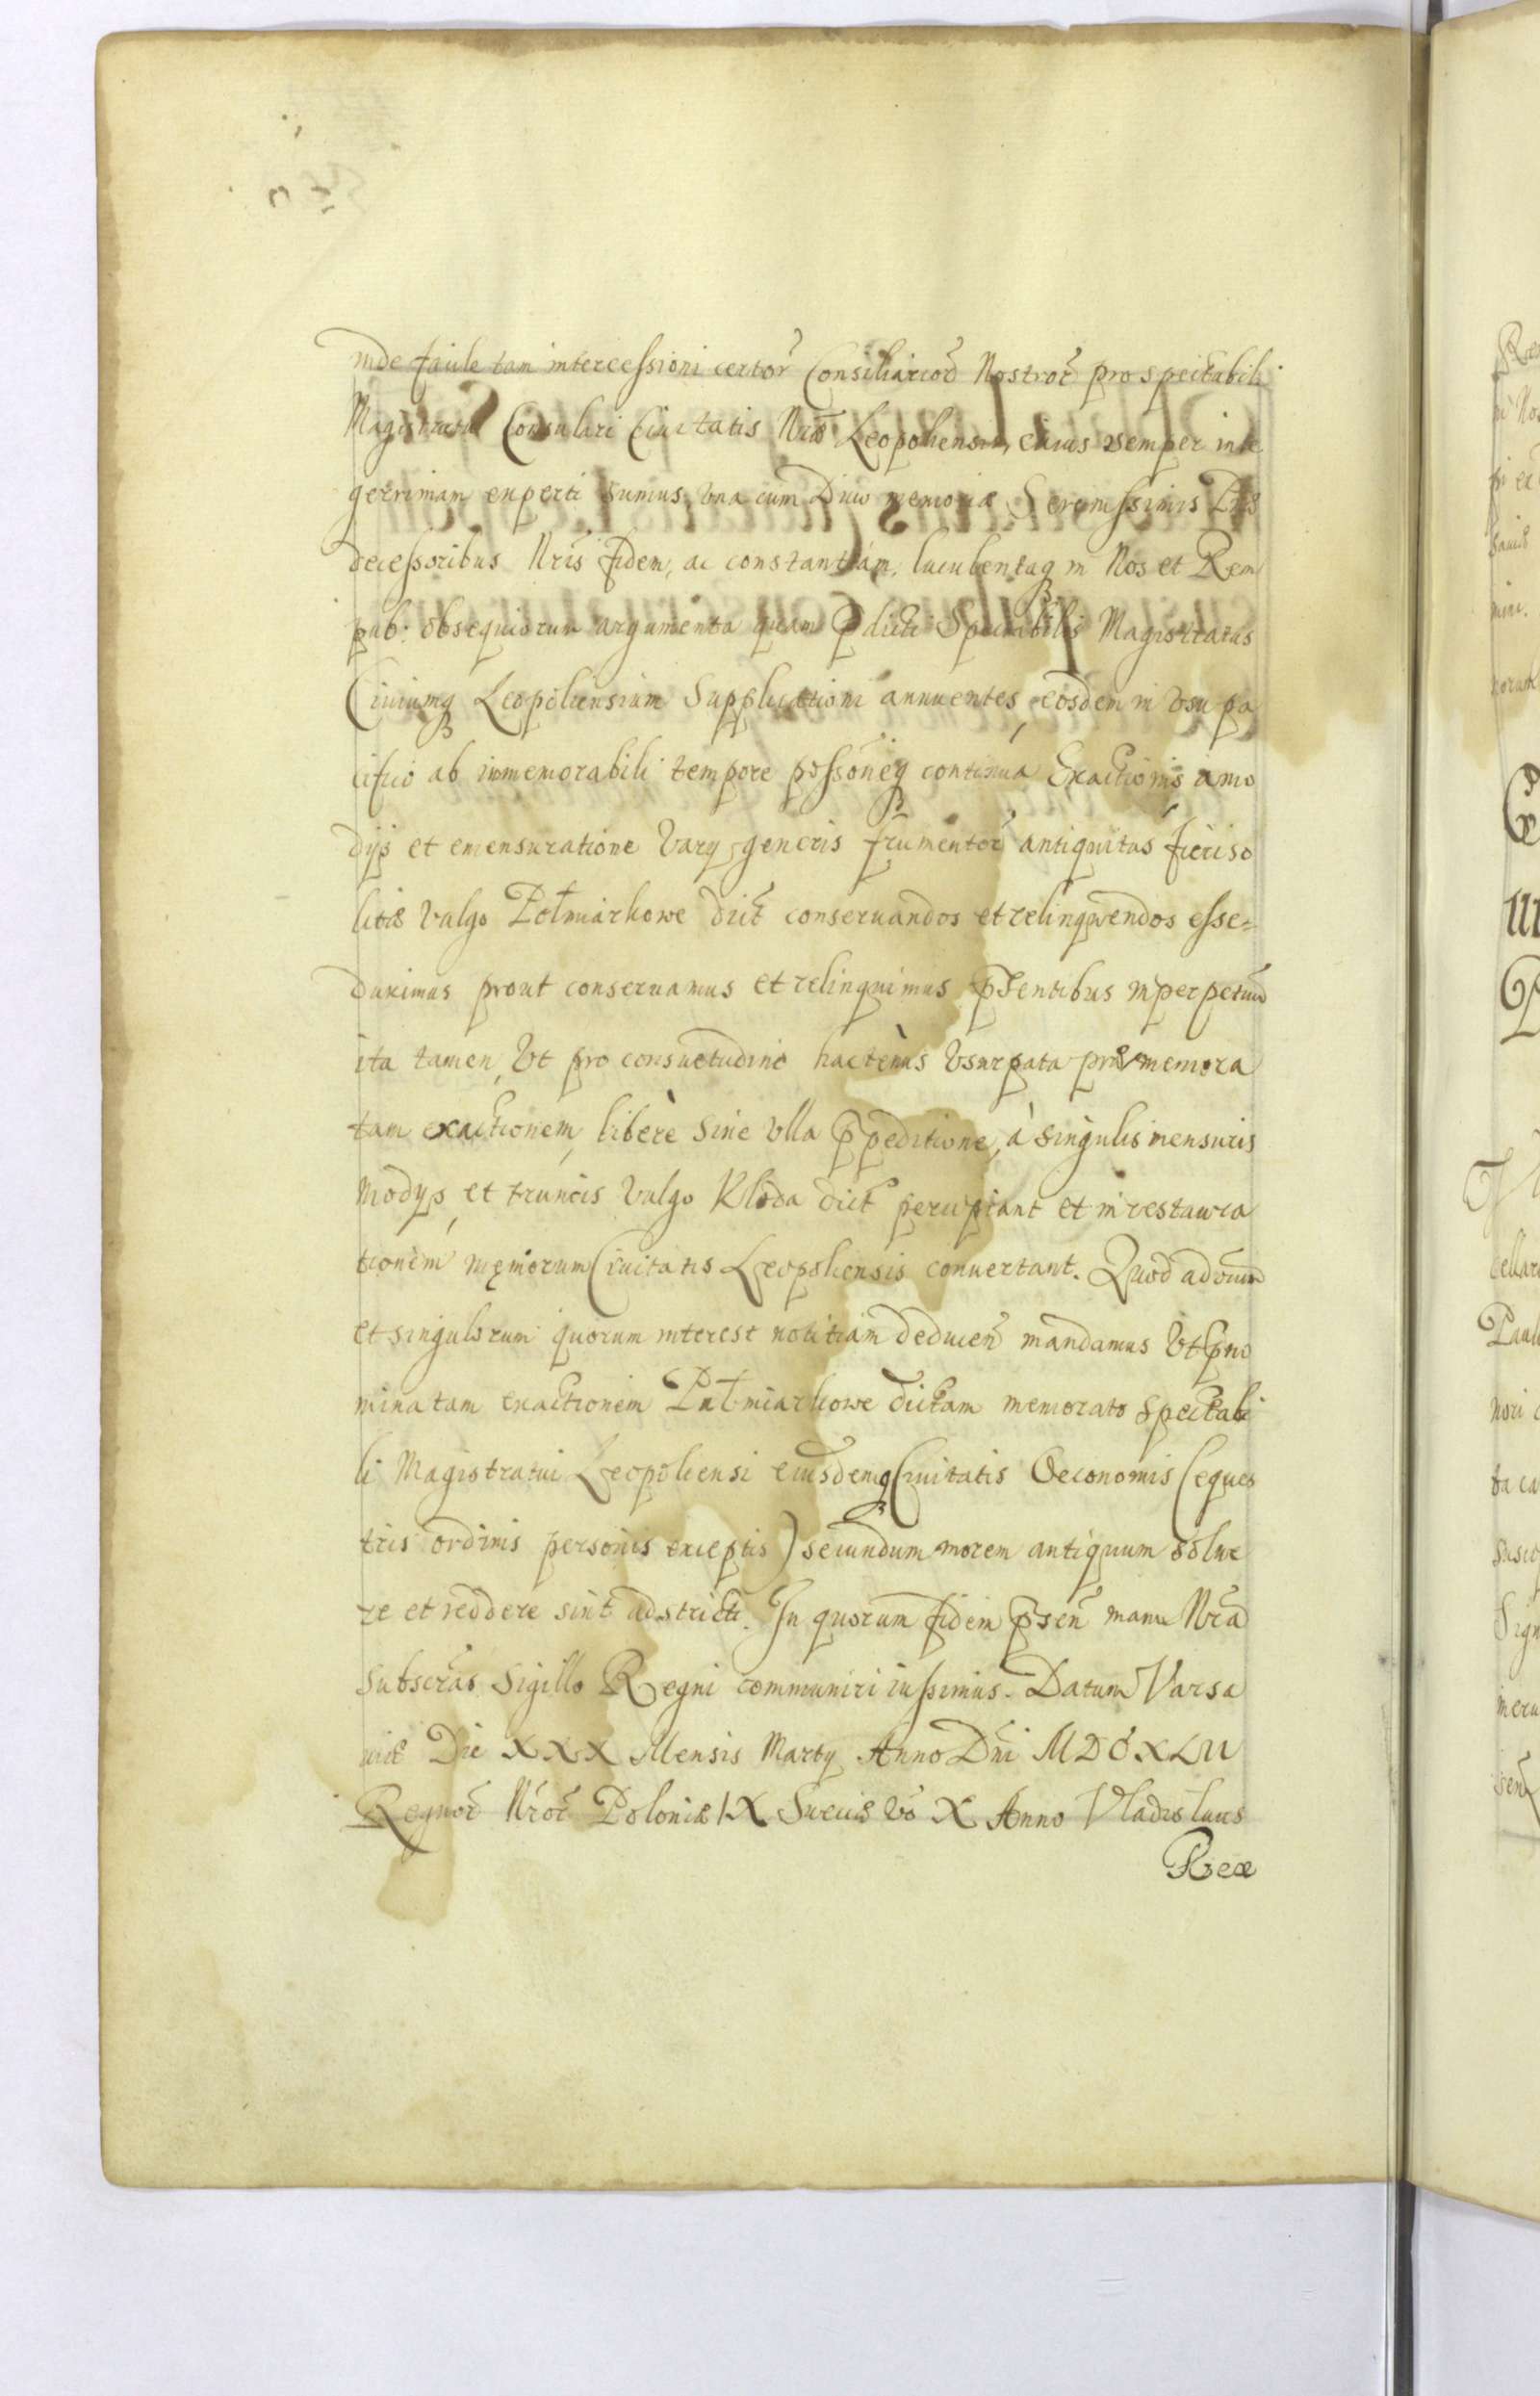 inde facile tam intercessioni certor̃ Consiliarior̃ Nostror̃ pro spectabili
Magistratu Consulari Ciuitatis Nrã Leopoliensis, cuius semper inte
gerrimam experti sumus vna cum Diuæ memoriæ Serenissimis Præ
decessoribus Nris fidem, ac constantiam, luculentaq in Nos et Rem
pub: obsequiorum argumenta quam pdicti Spectabilis Magistratus
Ciuiumq Leopoliensium Supplicationi annuentes, eosdem in vsu pa
cifico ab immemorabili tempore possoneq continua Exactionis a mo
dys et emensuratione Vary generis frumentor̃ antiquitus fieri so
litæ vulgo Polmiarkowe dict conseruandos et relinquendos esse=
duximus prout conseruamus et relinquimus psentibus in perpetuũ
ita tamen, vt pro consuetudine hactenùs vsurpata præmemora
tam exactionem, liberè sine vlla ppeditione, à singulis mensuris
modys, et truncis vulgo Kloda dict percipiant et in restaura
tionem mæniorum Ciuitatis Leopoliensis conuertant. Quod ad oium
et singulorum quorum interest notitiam deducen̄ mandamus Vt pno
minatam exactionem Polmiarkowe dictam memorato spectabi
li Magistratui Leopoliensi eiusdemq Ciuitatis Oeconomis (eques
tris ordinis personis exceptis) secundum morem antiquum solue
re et reddere sint adstricti. In quorum fidem psen̄ manu Nrã
subscrãs Sigillo Regni communiri iussimus. Datum Varsa
uiæ Die XXX Mensis Marty Anno Dni MDCXLII
Regnor̃ Nror̃ Poloniæ IX Sueciæ vo X Anno Vladislaus
Rex